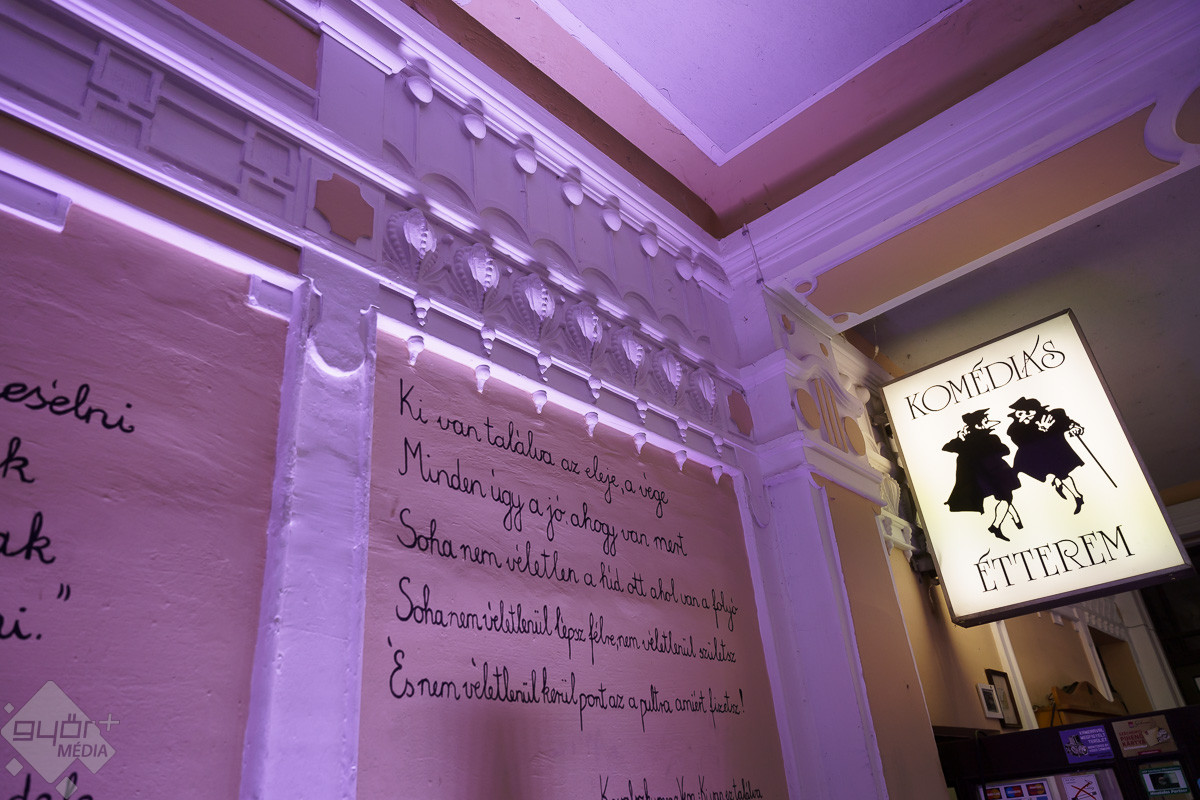 esélni
k
ak
i."
Ki van találva az eleje, a vége
Minden úgy a jó. ahogy van mert
Soha nem véletlen a híd ott ahol van a folyó
Soha nem véletlenül lépsz félre, nem véletlenül születsz
És nem véletlenül kerül pont az a pultra amiért fizetsz!
KOMÉDIÁS
ÉTTEREM
győr+
MÉDIA